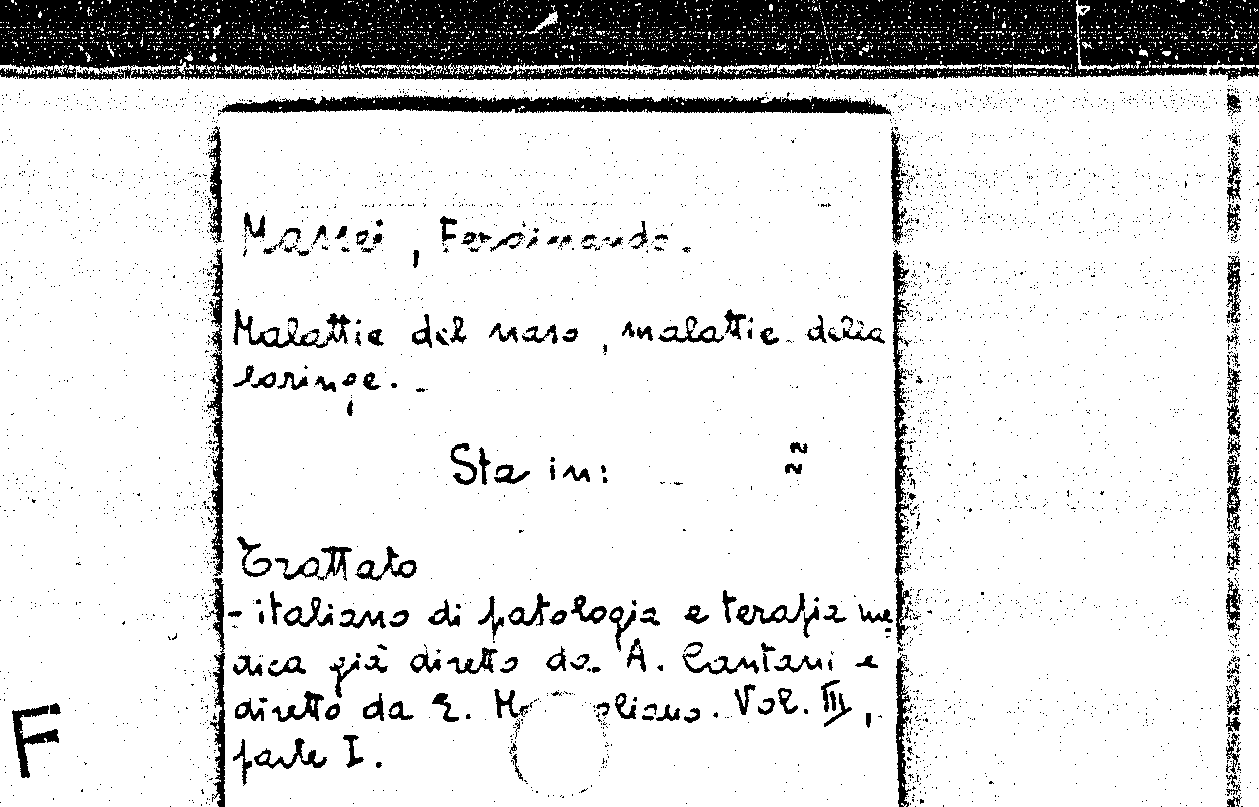 Massei, Ferdinando.
Malattie del naso, malattie della
laringe. -
Sta in:
Trattato
- italiano di patologia e terapia me
dica già diretto da A. Cantani e
diretto da E. Vol. III,
parte I.
F